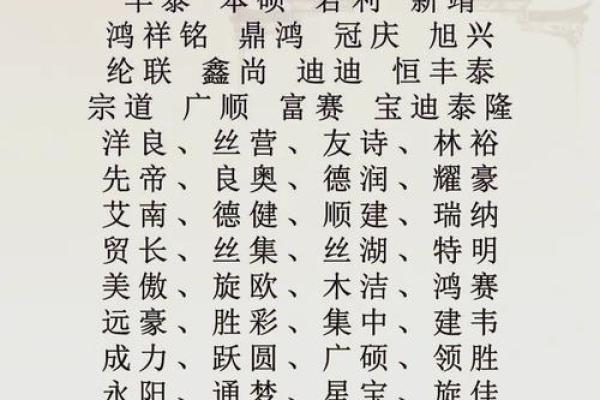 泰 本硕 利 新靖
鸿祥铭 鼎鸿 冠庆 旭兴
纶联 鑫尚 迪迪 恒丰泰
宗道 广顺 富赛 宝迪泰隆
洋良、丝营、友诗、林裕
先帝、良奥、德润、耀豪
艾南、德健、顺建、瑞纳
贸长、丝集、丝湖、特明
美傲、旋欧、木洁、鸿赛
远豪、胜彩、集中、建韦
成力、跃圆、广硕、领胜
永阳、通梦、星宝、旋佳